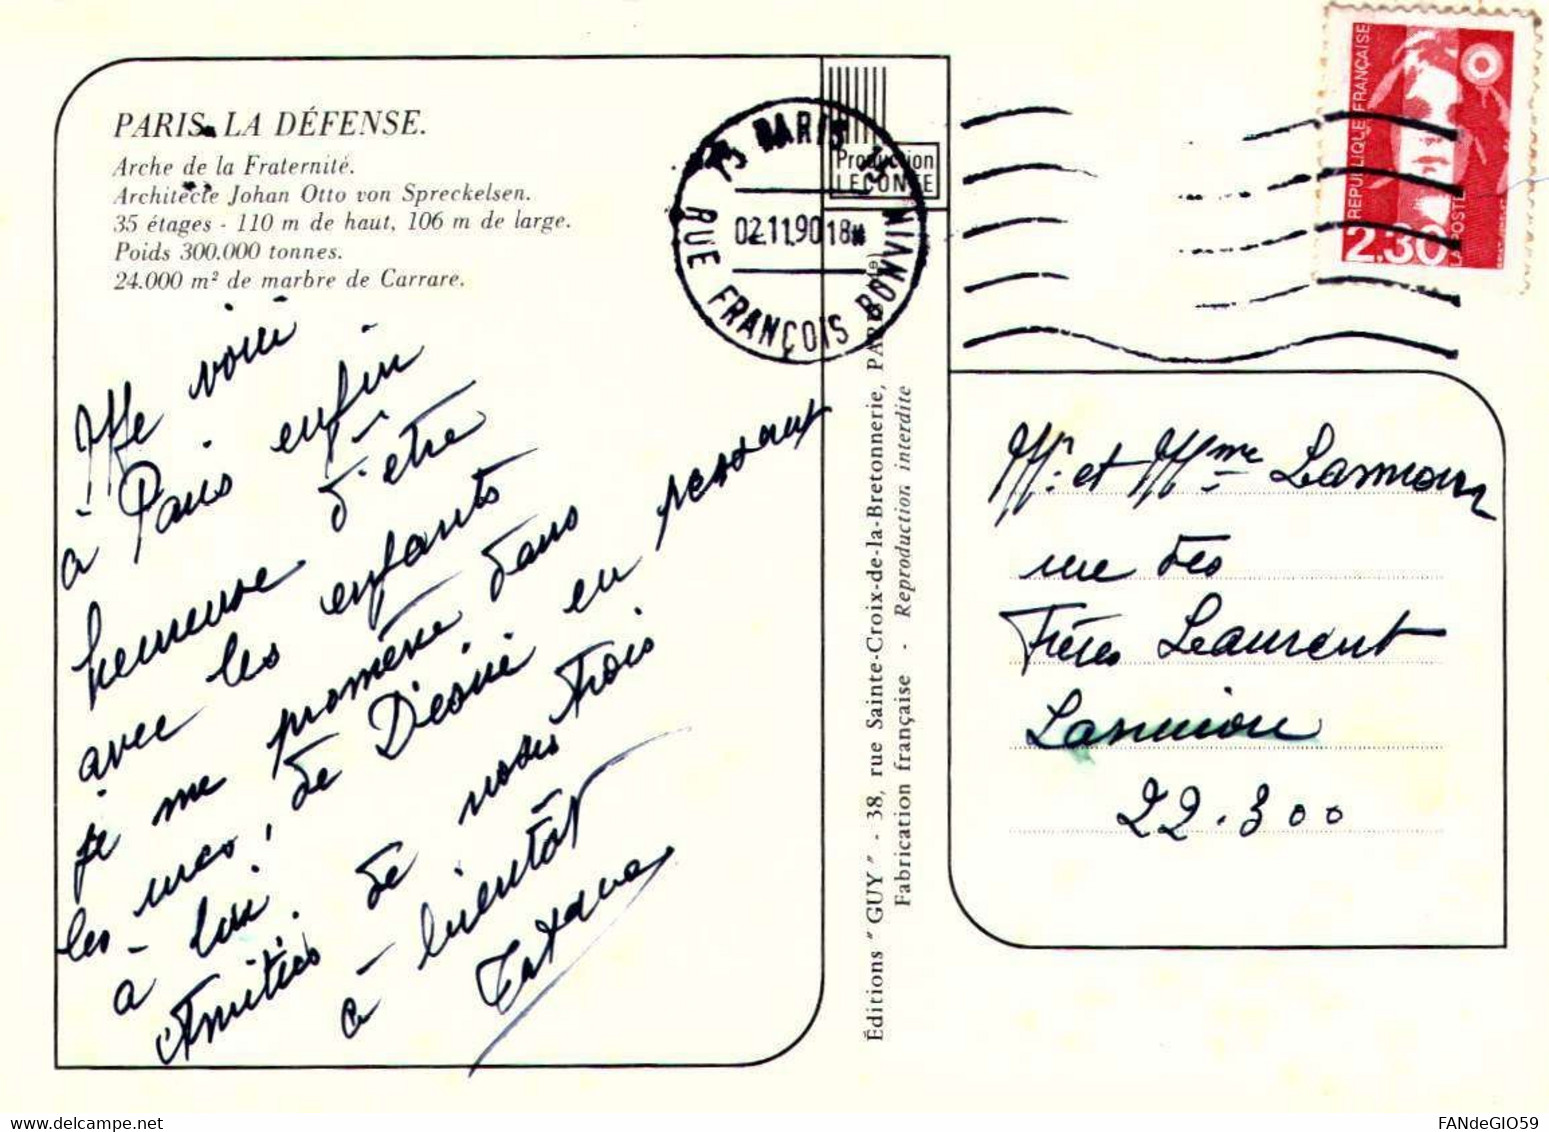 PARIS. LA DÉFENSE.
Arche de la Fraternité.
Architecte Johan Otto von Spreckelsen.
35 étages - 110 m de haut, 106 m de large.
Poids 300.000 tonnes.
24.000 m² de marbre de Carrare.
Me voici
à Paris enfin
heureuse d'être
avec les enfants
je me promène dans
les rues, de Désiré en pensant
a lui.
Amitiés de nous trois
a bientôt
Production
LECONTE
75 PARIS 15
02.11.90 18H
RUE FRANÇOIS BONVIN
Éditions "GUY" - 38, rue Sainte-Croix-de-la-Bretonnerie, PARIS (4e)
Fabrication française - Reproduction interdite
REPUBLIQUE FRANÇAISE
2.30
LA POSTE
Mr. et Mme Lamour
rue des
Frères Leaurent
Lannion
22.300
FANdeGIO59